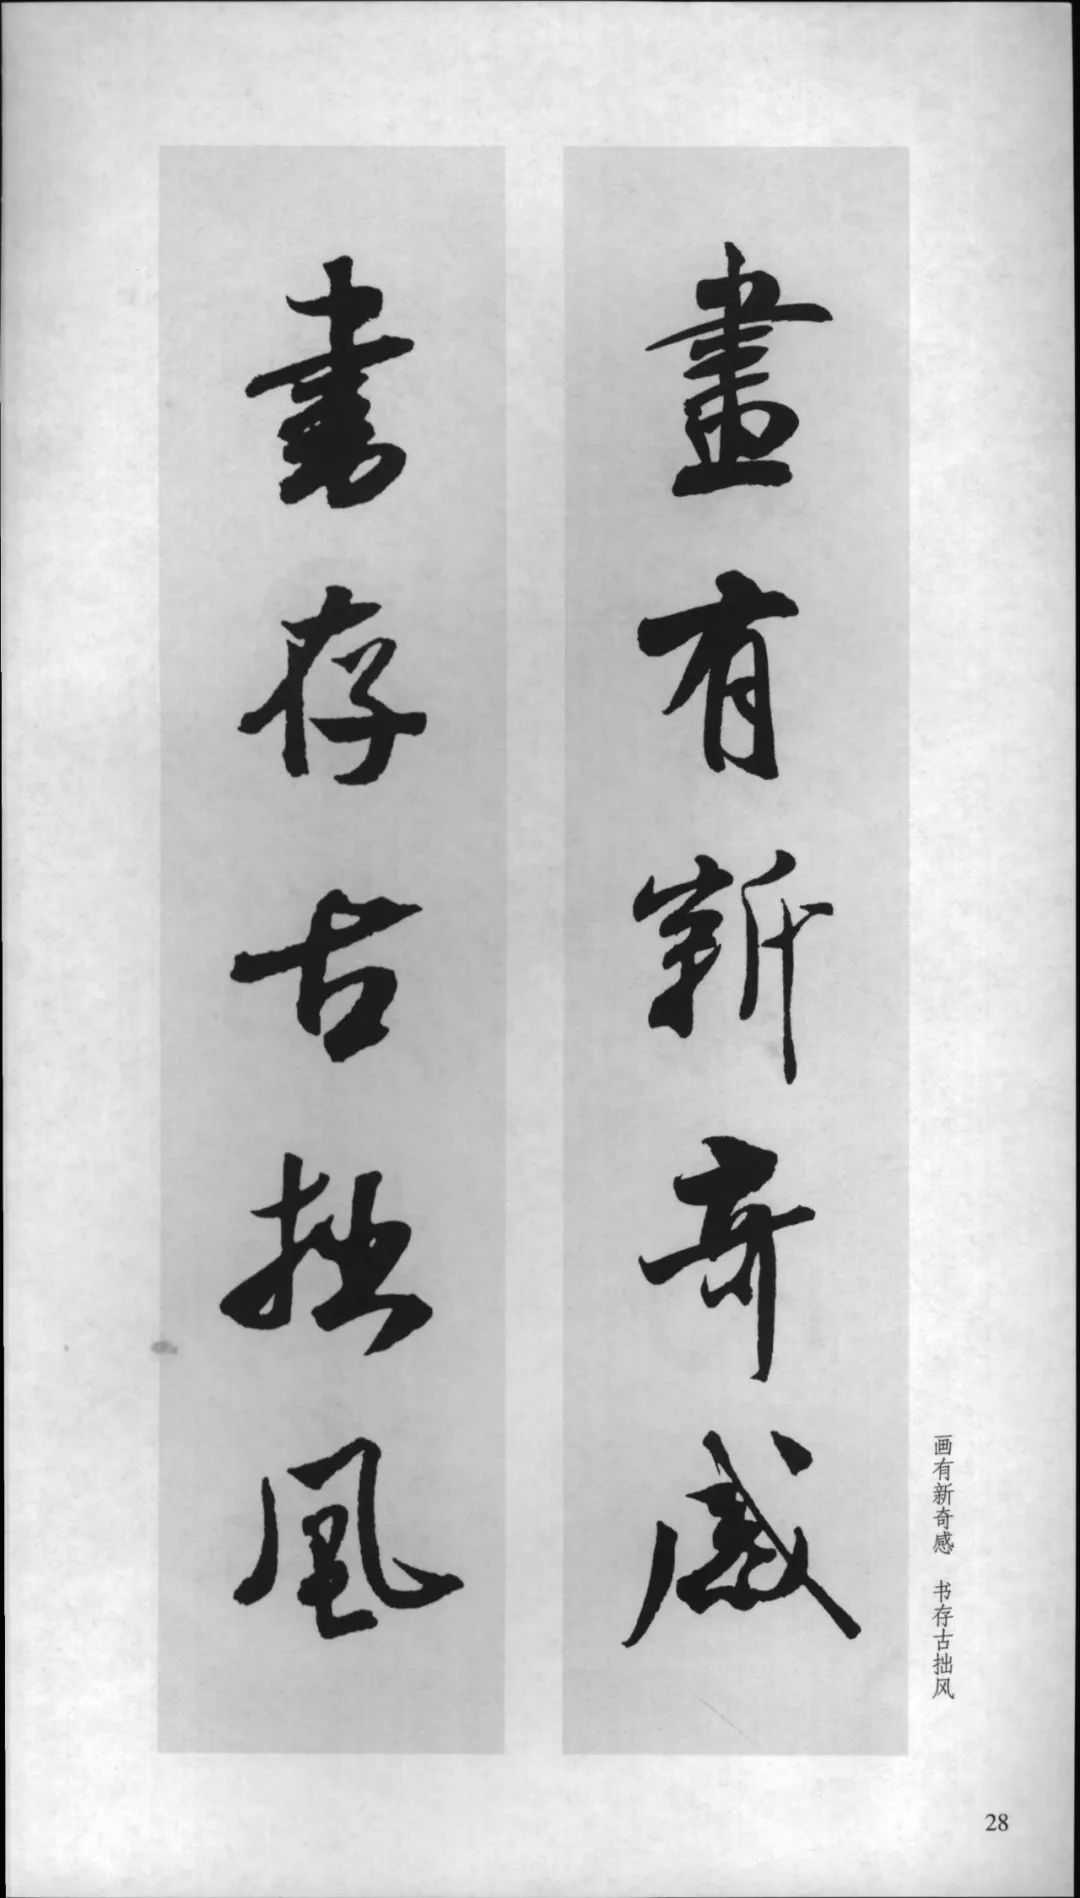 畫有新奇感
書存古拙風
画有新奇感 书存古拙风
28